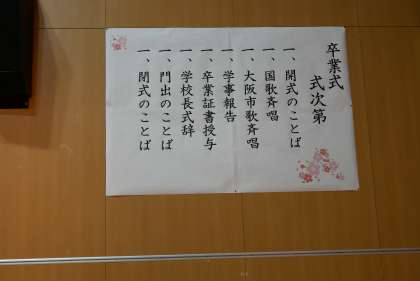 卒業式
式次第
一、開式のことば
一、国歌斉唱
一、大阪市歌斉唱
一、学事報告
一、卒業証書授与
一、学校長式辞
一、門出のことば
一、閉式のことば